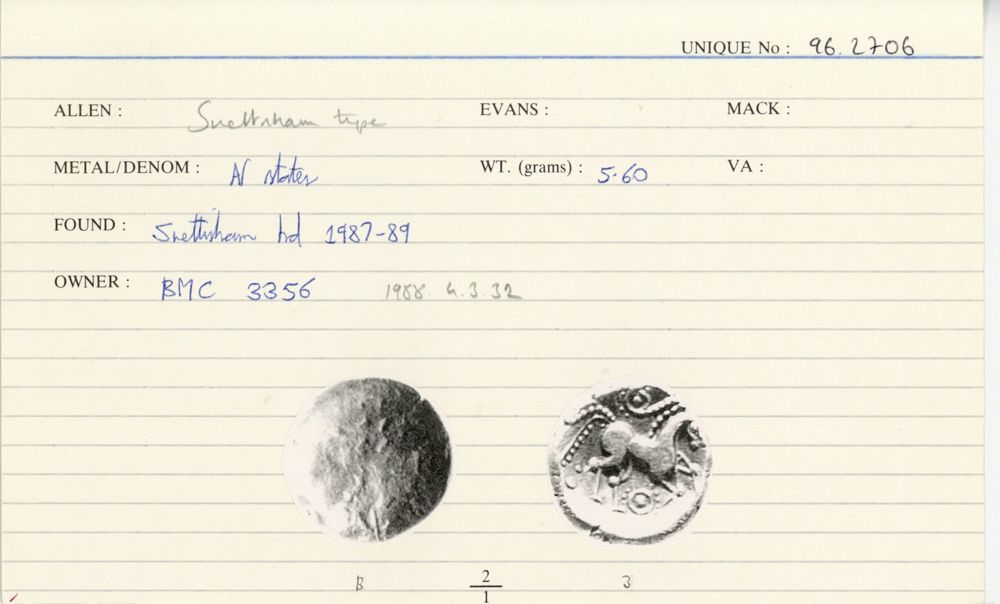 UNIQUE No : 96.2706
ALLEN : Snettisham type EVANS : MACK :
METAL/DENOM : AV stater WT. (grams) : 5.60 VA :
FOUND : Snettisham hd 1987-89
OWNER : BMC 3356 1988. 4.3.32
B 2/1 3